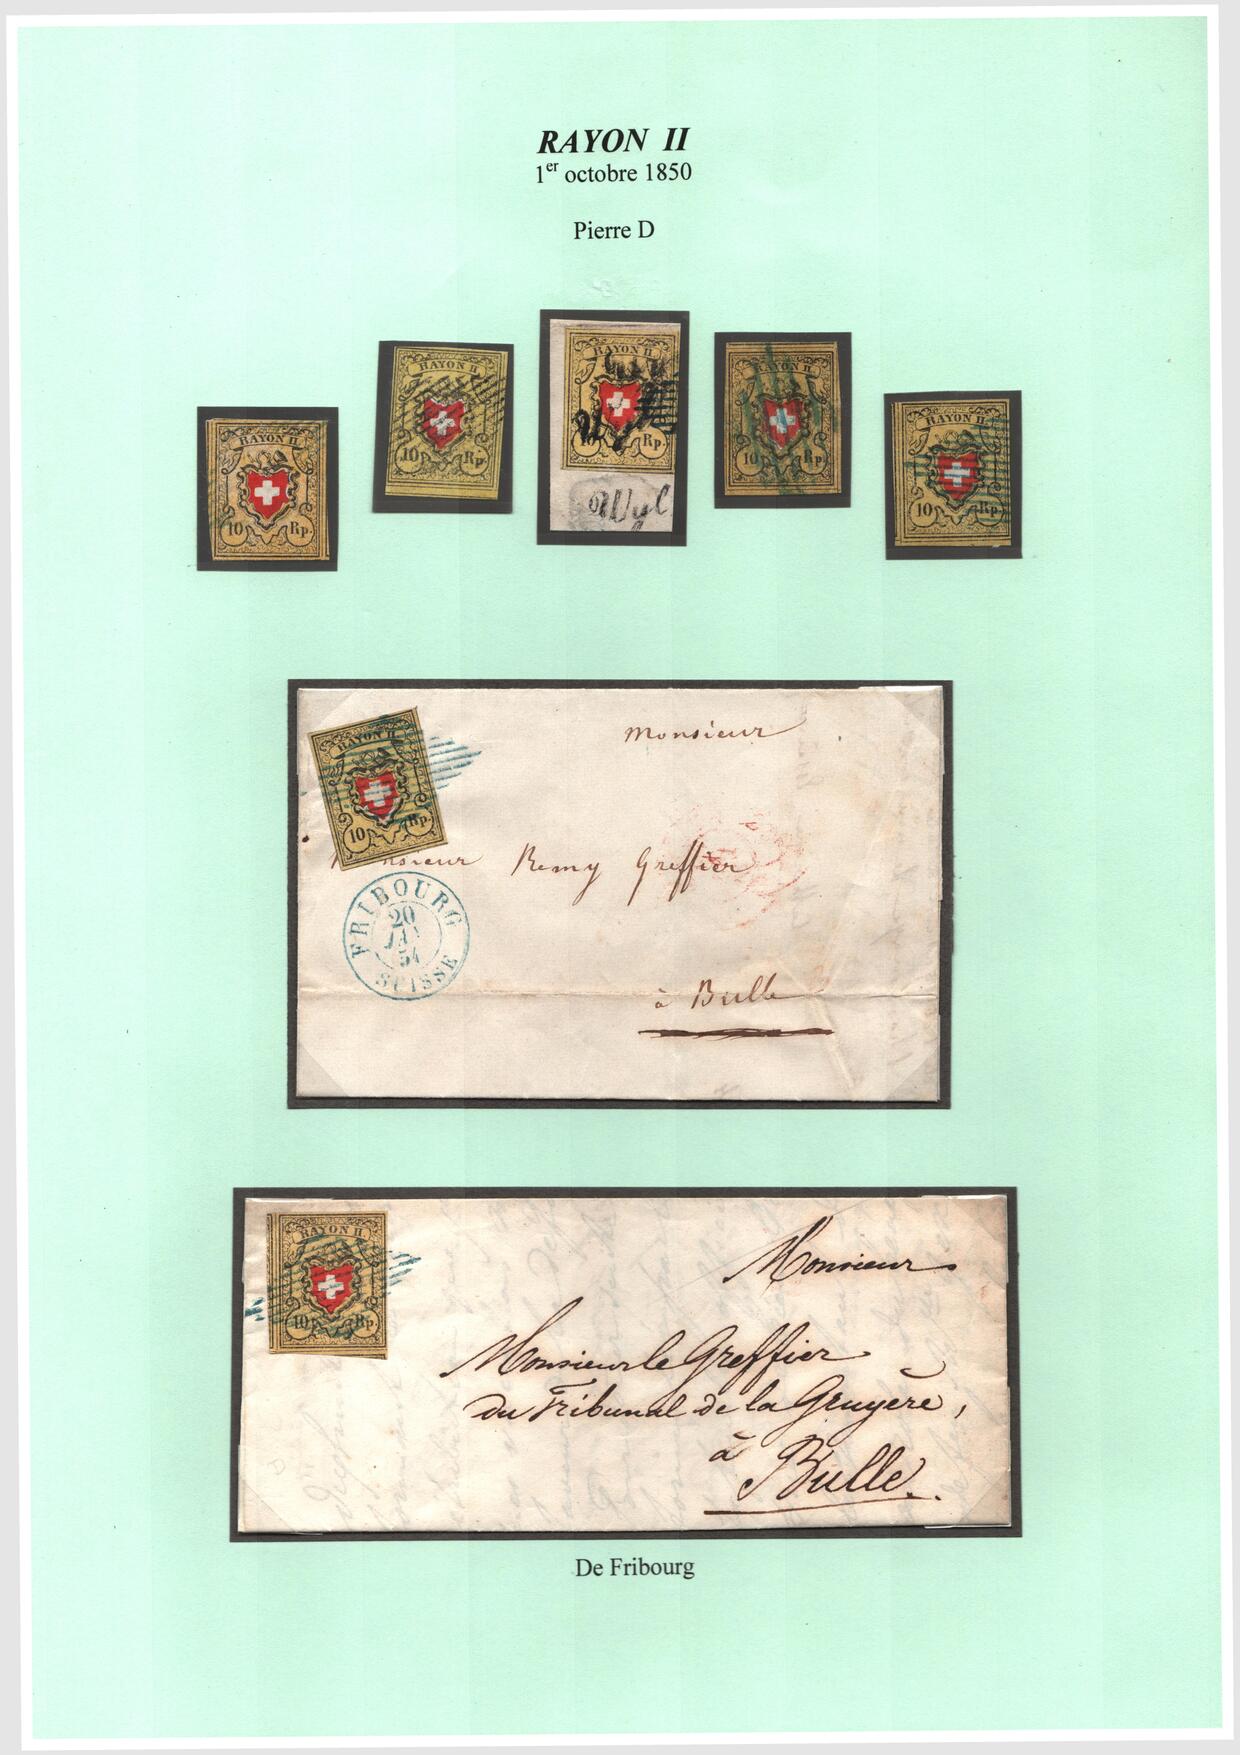 RAYON II
1er octobre 1850
Pierre D
RAYON II
10 Rp.
RAYON II
10 Rp.
RAYON II
10 Rp.
Wyl
RAYON II
10 Rp.
RAYON II
10 Rp.
RAYON II.
10 Rp.
Monsieur
Monsieur Remy Greffier
à Bulle
FRIBOURG
20
JAN
54
SUISSE
RAYON II.
10 Rp.
Monsieur
Monsieur le Greffier
du Tribunal de la Gruyère,
à Bulle.
De Fribourg